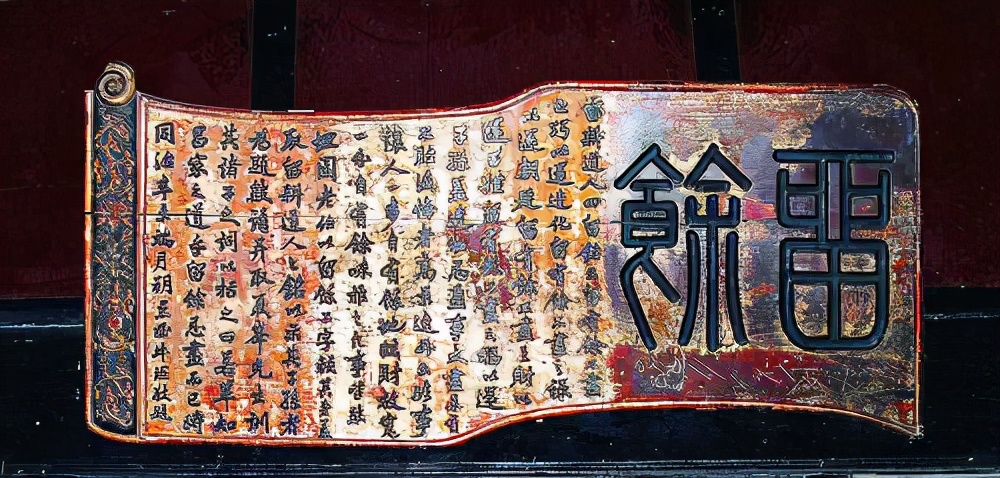 留餘
留耕道人四留銘云留有餘不盡
之巧以還造化留有餘不盡之祿
以還朝廷留有餘不盡之財以
還百姓留有餘不盡之福以還
子孫蓋造物忌盈事太盡未有
不貽後悔者高景逸所云臨事
讓人一步自有餘地臨財放寬
一分自有餘味推之凡事皆然
坦園老伯以留餘二字顏其堂蓋
取留耕道人之銘以示其子孫者
為題數語并取夏峰先生訓
其諸子之詞以括之曰若輩知
昌家之道乎留餘忌盡而已時
同治辛未端月朔愚姪牛瑄敬題